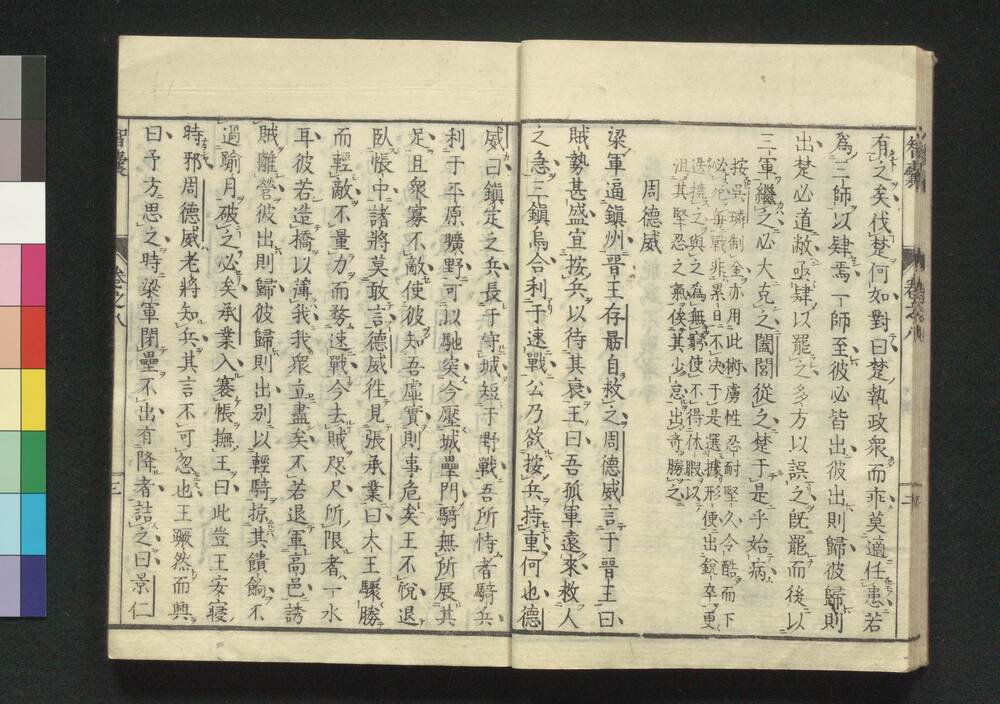 有之矣伐楚何如對曰楚執政衆而乖莫適任患若
爲三師以肄焉一師至彼必皆出彼出則歸彼歸則
出楚必道敝亟肄以罷之多方以誤之既罷而後以
三軍繼之必大克之闔閭從之楚于是乎始病
按呉璘制金亦用此術虜性忍耐堅久令酷而下
必死毎戰非累日不決于是選據形便出銳卒更
迭撓之與之爲無窮使不得休暇以
沮其堅忍之氣俟其少怠出奇勝之
周德威
梁軍逼鎭州晋王存勗自救之周德威言于晋王曰
賊勢甚盛宜按兵以待其衰王曰吾孤軍遠來救人
之急三鎭烏合利于速戰公乃欲按兵持重何也德
威曰鎭定之兵長于守城短于野戰吾所恃者騎兵
利于平原曠野可以馳突今壓城壘門騎無所展其
足且衆寡不敵使彼知吾虛實則事危矣王不悅退
臥帳中諸將莫敢言德威徃見張承業曰大王驟勝
而輕敵不量力而務速戰今去賊咫尺所限者一水
耳彼若造橋以薄我我衆立盡矣不若退軍高邑誘
賊離營彼出則歸彼歸則出別以輕騎掠其饋餉不
過踰月破之必矣承業入褰帳撫王曰此豈王安寝
時邪周德威老將知兵其言不可忽也王蹶然而興
曰予方思之時梁軍閉壘不出有降者詰之曰景仁
智嚢
卷之八
三